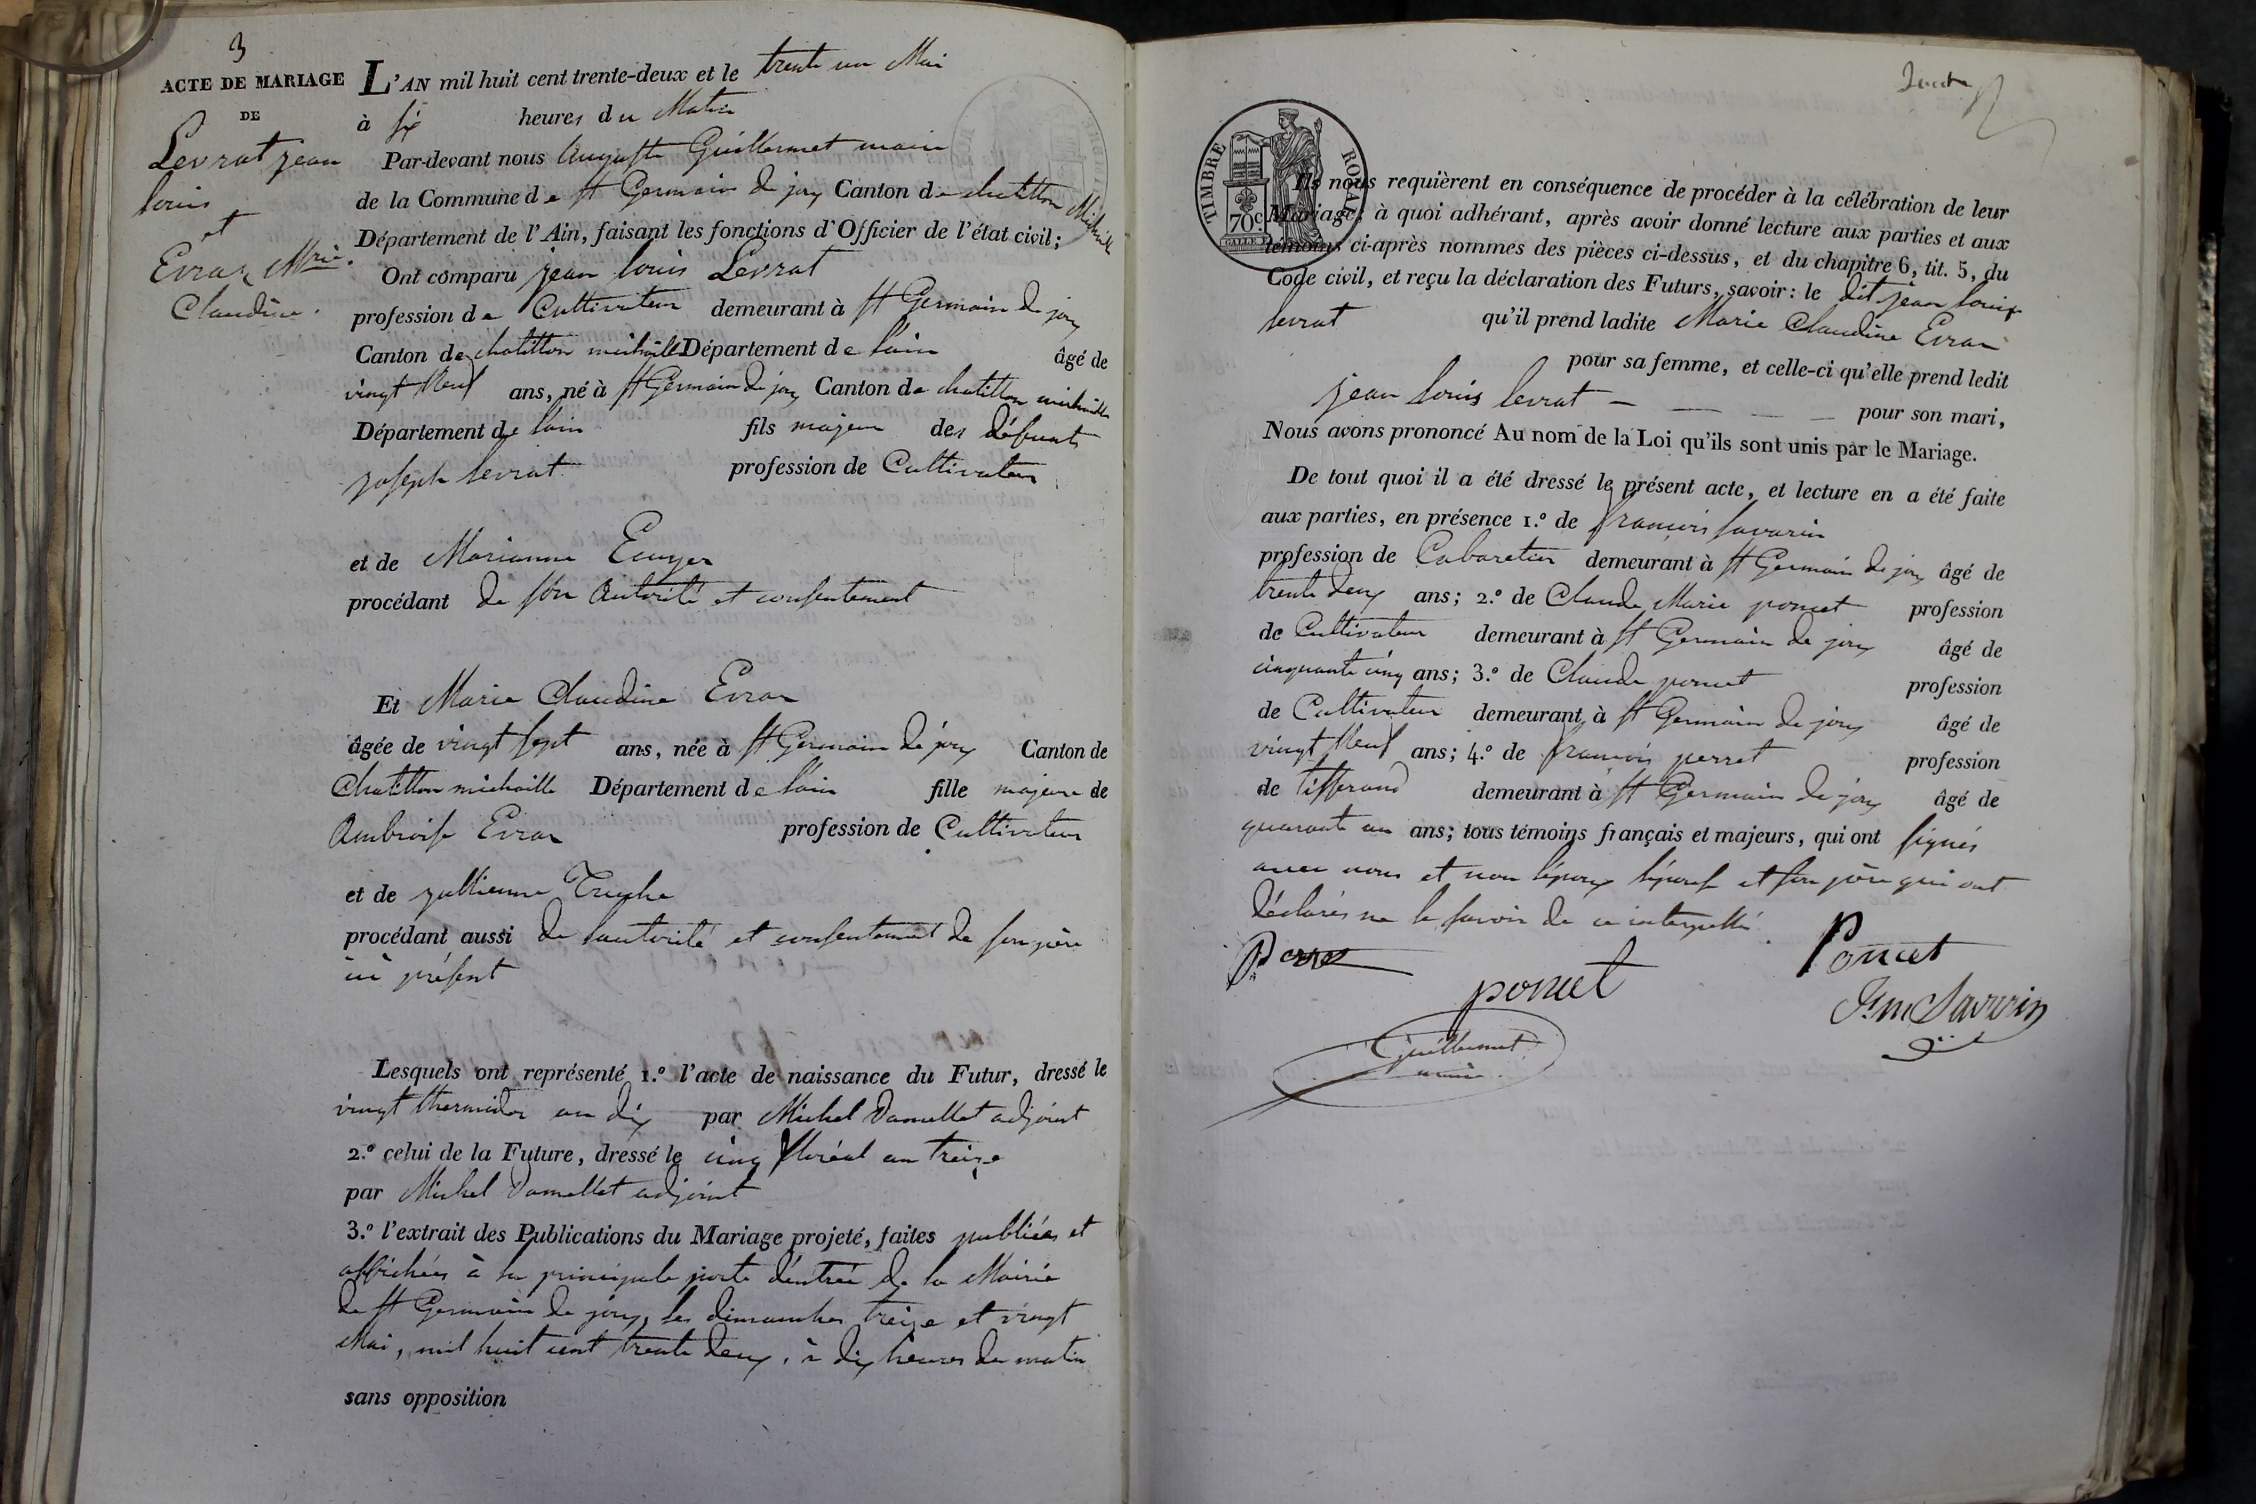 3
ACTE DE MARIAGE
DE
Levrat jean
louis
et
Evrar Mrie.
Claudine.
L'AN mil huit cent trente-deux et le trente un Mai
à six heures du Matin
Par-devant nous Auguste Guillermet maire
de la Commune de st Germain de joux Canton de chatillon Michaille
Département de l'Ain, faisant les fonctions d'Officier de l'état civil;
Ont comparu jean louis Levrat
profession de Cultivateur demeurant à st Germain de joux
Canton de chatillon michaille Département de lain âgé de
vingt Neuf ans, né à st Germain de joux Canton de chatillon michaille
Département de lain fils majeur des défunts
joseph levrat profession de Cultivateur
et de Marianne Ecuyer
procédant de son Autorité et consentement
Et Marie Claudine Evrar
âgée de vingt sept ans, née à st Germain de joux Canton de
Chatillon michaille Département de lain fille majeure de
Ambroise Evrar profession de Cultivateur
et de jullienne
procédant aussi de lautorité et consentement de son père
ici présent
Lesquels ont représenté 1.º l'acte de naissance du Futur, dressé le
vingt thermidor an dix par Michel adjoint
2.º celui de la Future, dressé le cinq floréal an treize
par Michel adjoint
3.º l'extrait des Publications du Mariage projeté, faites publiées et
affichées à la principale porte d'entrée de la Mairie
de st Germain de joux, les dimanches treize et vingt
Mai, mil huit cent trente deux, à dix heures du matin
sans opposition
TIMBRE ROYAL
70c
Ils nous requièrent en conséquence de procéder à la célébration de leur
Mariage; à quoi adhérant, après avoir donné lecture aux parties et aux
témoins ci-après nommés des pièces ci-dessus, et du chapitre 6, tit. 5, du
Code civil, et reçu la déclaration des Futurs, savoir: le dit jean louis
levrat qu'il prend ladite Marie Claudine Evrar
pour sa femme, et celle-ci qu'elle prend ledit
jean louis levrat — — — — pour son mari,
Nous avons prononcé Au nom de la Loi qu'ils sont unis par le Mariage.
De tout quoi il a été dressé le présent acte, et lecture en a été faite
aux parties, en présence 1.º de françois savarin
profession de Cabaretier demeurant à st Germain de joux âgé de
trente deux ans; 2.º de Claude Marie poncet profession
de Cultivateur demeurant à st Germain de joux âgé de
cinquante cinq ans; 3.º de Claude poncet profession
de Cultivateur demeurant à st Germain de joux âgé de
vingt Neuf ans; 4.º de françois perret profession
de tisserand demeurant à st Germain de joux âgé de
quarante un ans; tous témoins français et majeurs, qui ont signés
avec nous et non lépoux lépouse et son père qui ont
déclarés ne le savoir de ce interpellé.
Poncet
poncet
Savarin
Guillermet
maire